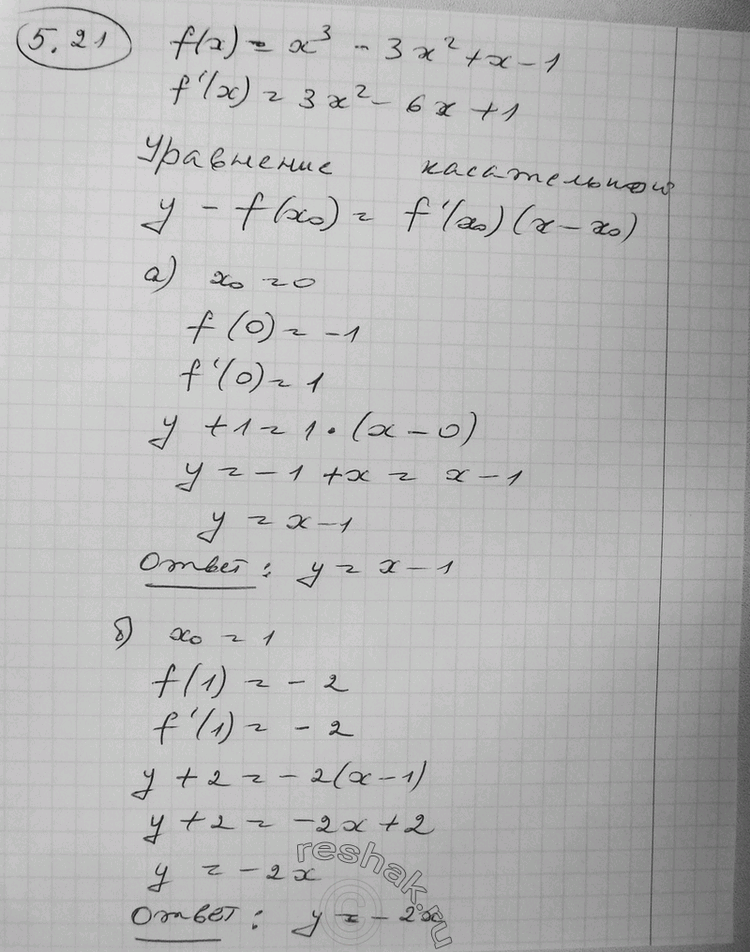 5.21 f(x) = x³ - 3x² + x - 1
f'(x) = 3x² - 6x + 1
Уравнение касательной
y - f(x₀) = f'(x₀)(x - x₀)
а) x₀ = 0
f(0) = -1
f'(0) = 1
y + 1 = 1·(x - 0)
y = -1 + x = x - 1
y = x - 1
Ответ: y = x - 1
б) x₀ = 1
f(1) = -2
f'(1) = -2
y + 2 = -2(x - 1)
y + 2 = -2x + 2
y = -2x
Ответ: y = -2x
reshak.ru
©